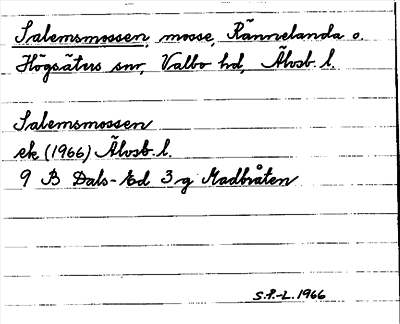 Salemsmossen, mosse, Rännelanda o.
Högsäters snr, Valbo hd, Älvsb. l.
Salemsmossen
ek (1966) Älvsb. l.
9 B Dals-Ed 3 g Madbråten
S.F.-L. 1966